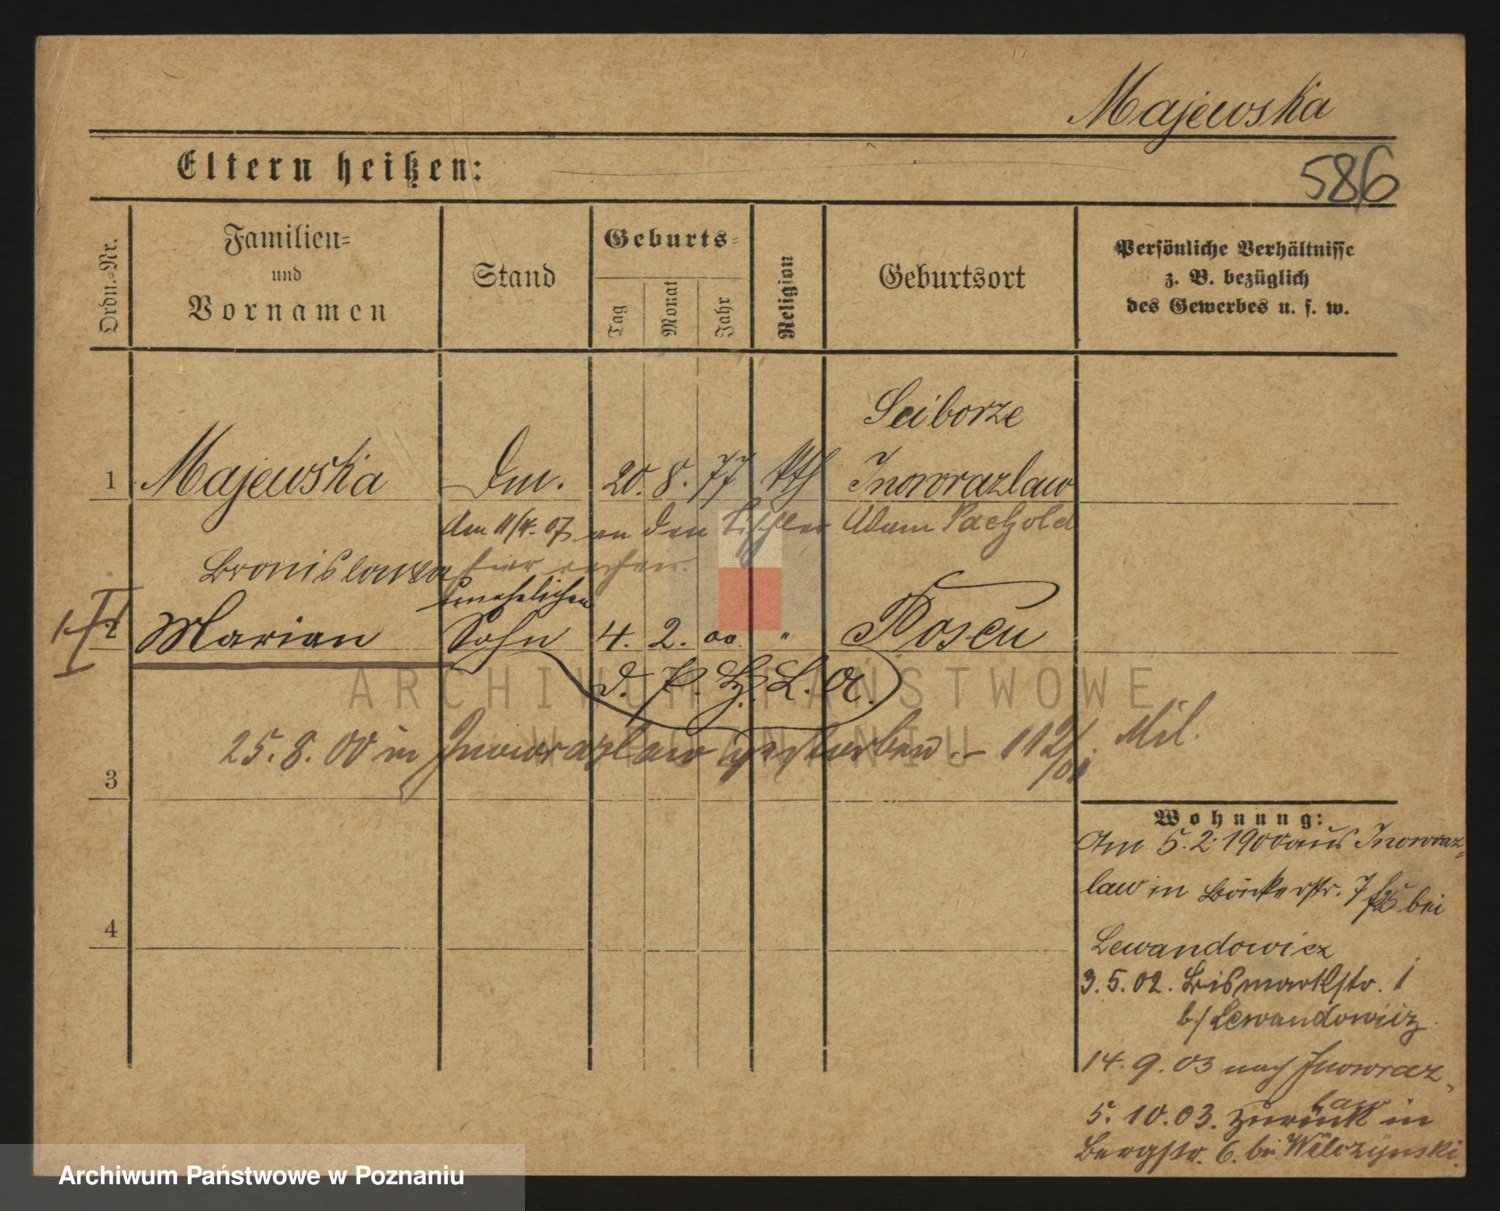 Majewska
586
Eltern heißen:
Ordn.-Nr.
Familien-
und
Vornamen
Stand
Geburts-
Tag
Monat
Jahr
Religion
Geburtsort
Persönliche Verhältnisse
z. B. bezüglich
des Gewerbes u. s. w.
Sciborze
1 Majewska Dm. 20. 8. 77 kth Inowrazlaw
Am 11/4. 07 an den Tischler Adam
Bronislawa hier
unehelicher
2 Marian Sohn 4. 2. 00. " Posen
d. P. L. A.
25. 8. 00 in Inowrazlaw gestorben. - 112/01. Mil.
3
4
Wohnung:
Am 5. 2. 1900 aus Inowraz-
law in Bäckerstr. 7 bei
Lewandowicz
3. 5. 02. Bismarkstr. 1
b/ Lewandowicz
14. 9. 03 nach Inowraz-
law
5. 10. 03. zurück in
Bergstr. 6. bei Wilczynski.
ARCHIWUM PAŃSTWOWE
W POZNANIU
Archiwum Państwowe w Poznaniu